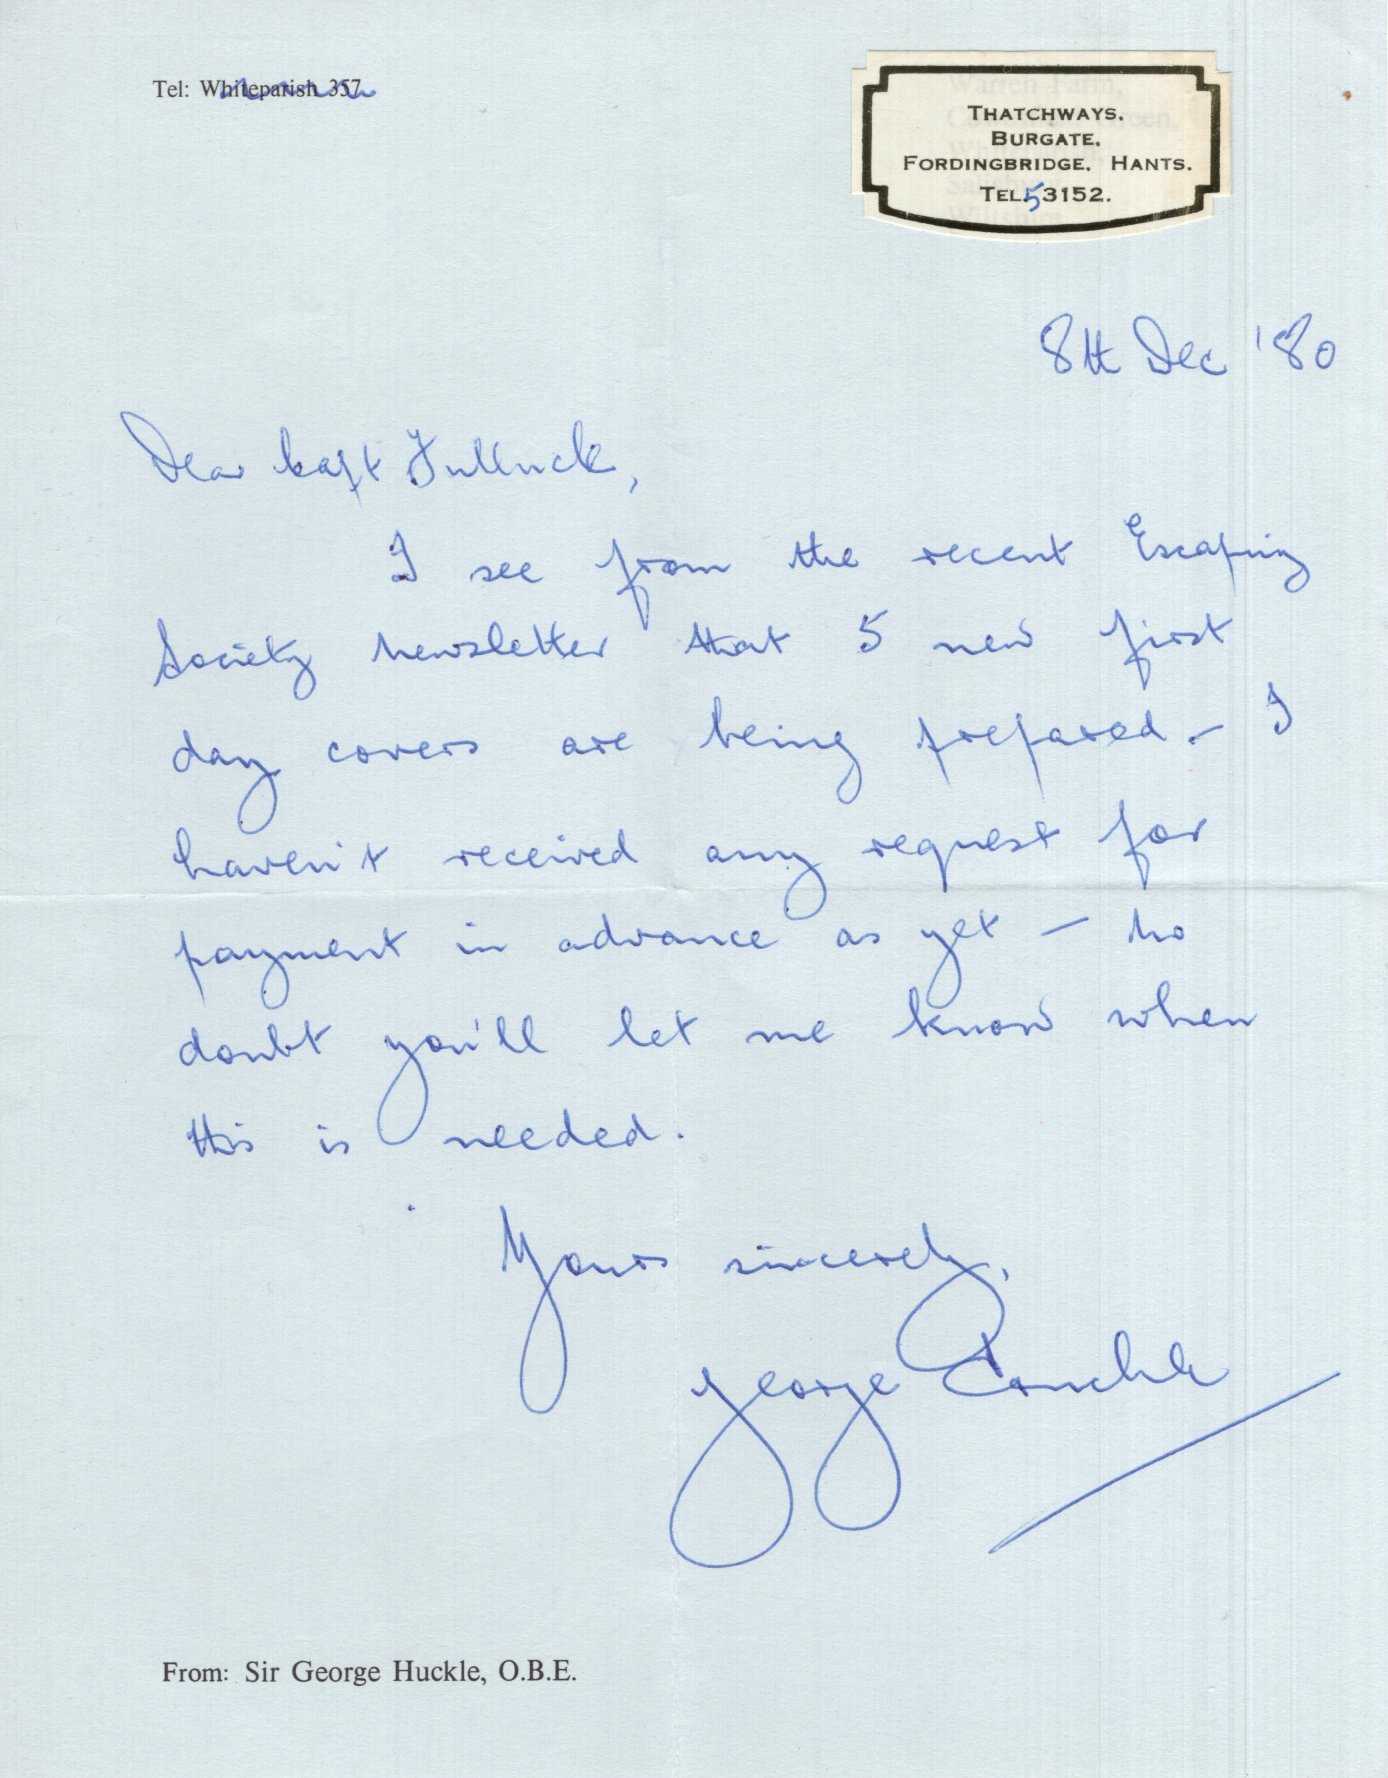 Tel: Whiteparish 357
THATCHWAYS.
BURGATE.
FORDINGBRIDGE. HANTS.
TEL. 53152.
8th Dec '80
Dear Capt
I see from the recent Escaping
Society newsletter that 5 new first
day covers are being prepared – I
haven't received any request for
payment in advance as yet – no
doubt you'll let me know when
this is needed.
Yours sincerely,
George
From: Sir George Huckle, O.B.E.